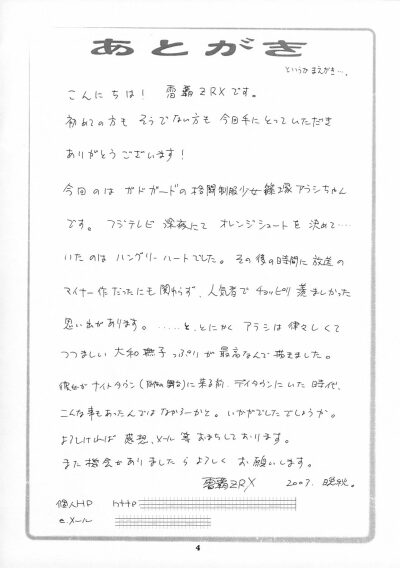 あとがき
というか まえがき…。
こんにちは! 雷覇ZRXです。
初めての方も そうでない方も 今回手にとっていただき
ありがとうございます!
今回のは ガドガードの格闘制服少女 篠塚アラシちゃん
です。 フジテレビ 深夜にて オレンジシュートを 決めて…
いたのは ハングリーハートでした。 その後の時間に放送の
マイナー作だったにも関わらず、人気者で チョッピリ 羨ましかった
思い出があります。 ……と、とにかく アラシは 律々しくて
つつましい 大和撫子っぷりが 最高なんで 描きました。
彼女が ナイトタウン に来る前、デイタウンにいた時代、
こんな事もあったんでは なかろーかと。いかがでしたでしょうか。
よろしければ 感想、メール 等 おまちしております。
また機会がありましたら よろしく お願いします。
雷覇ZRX 2007. 晩秋。
個人HP http
e.メール
4